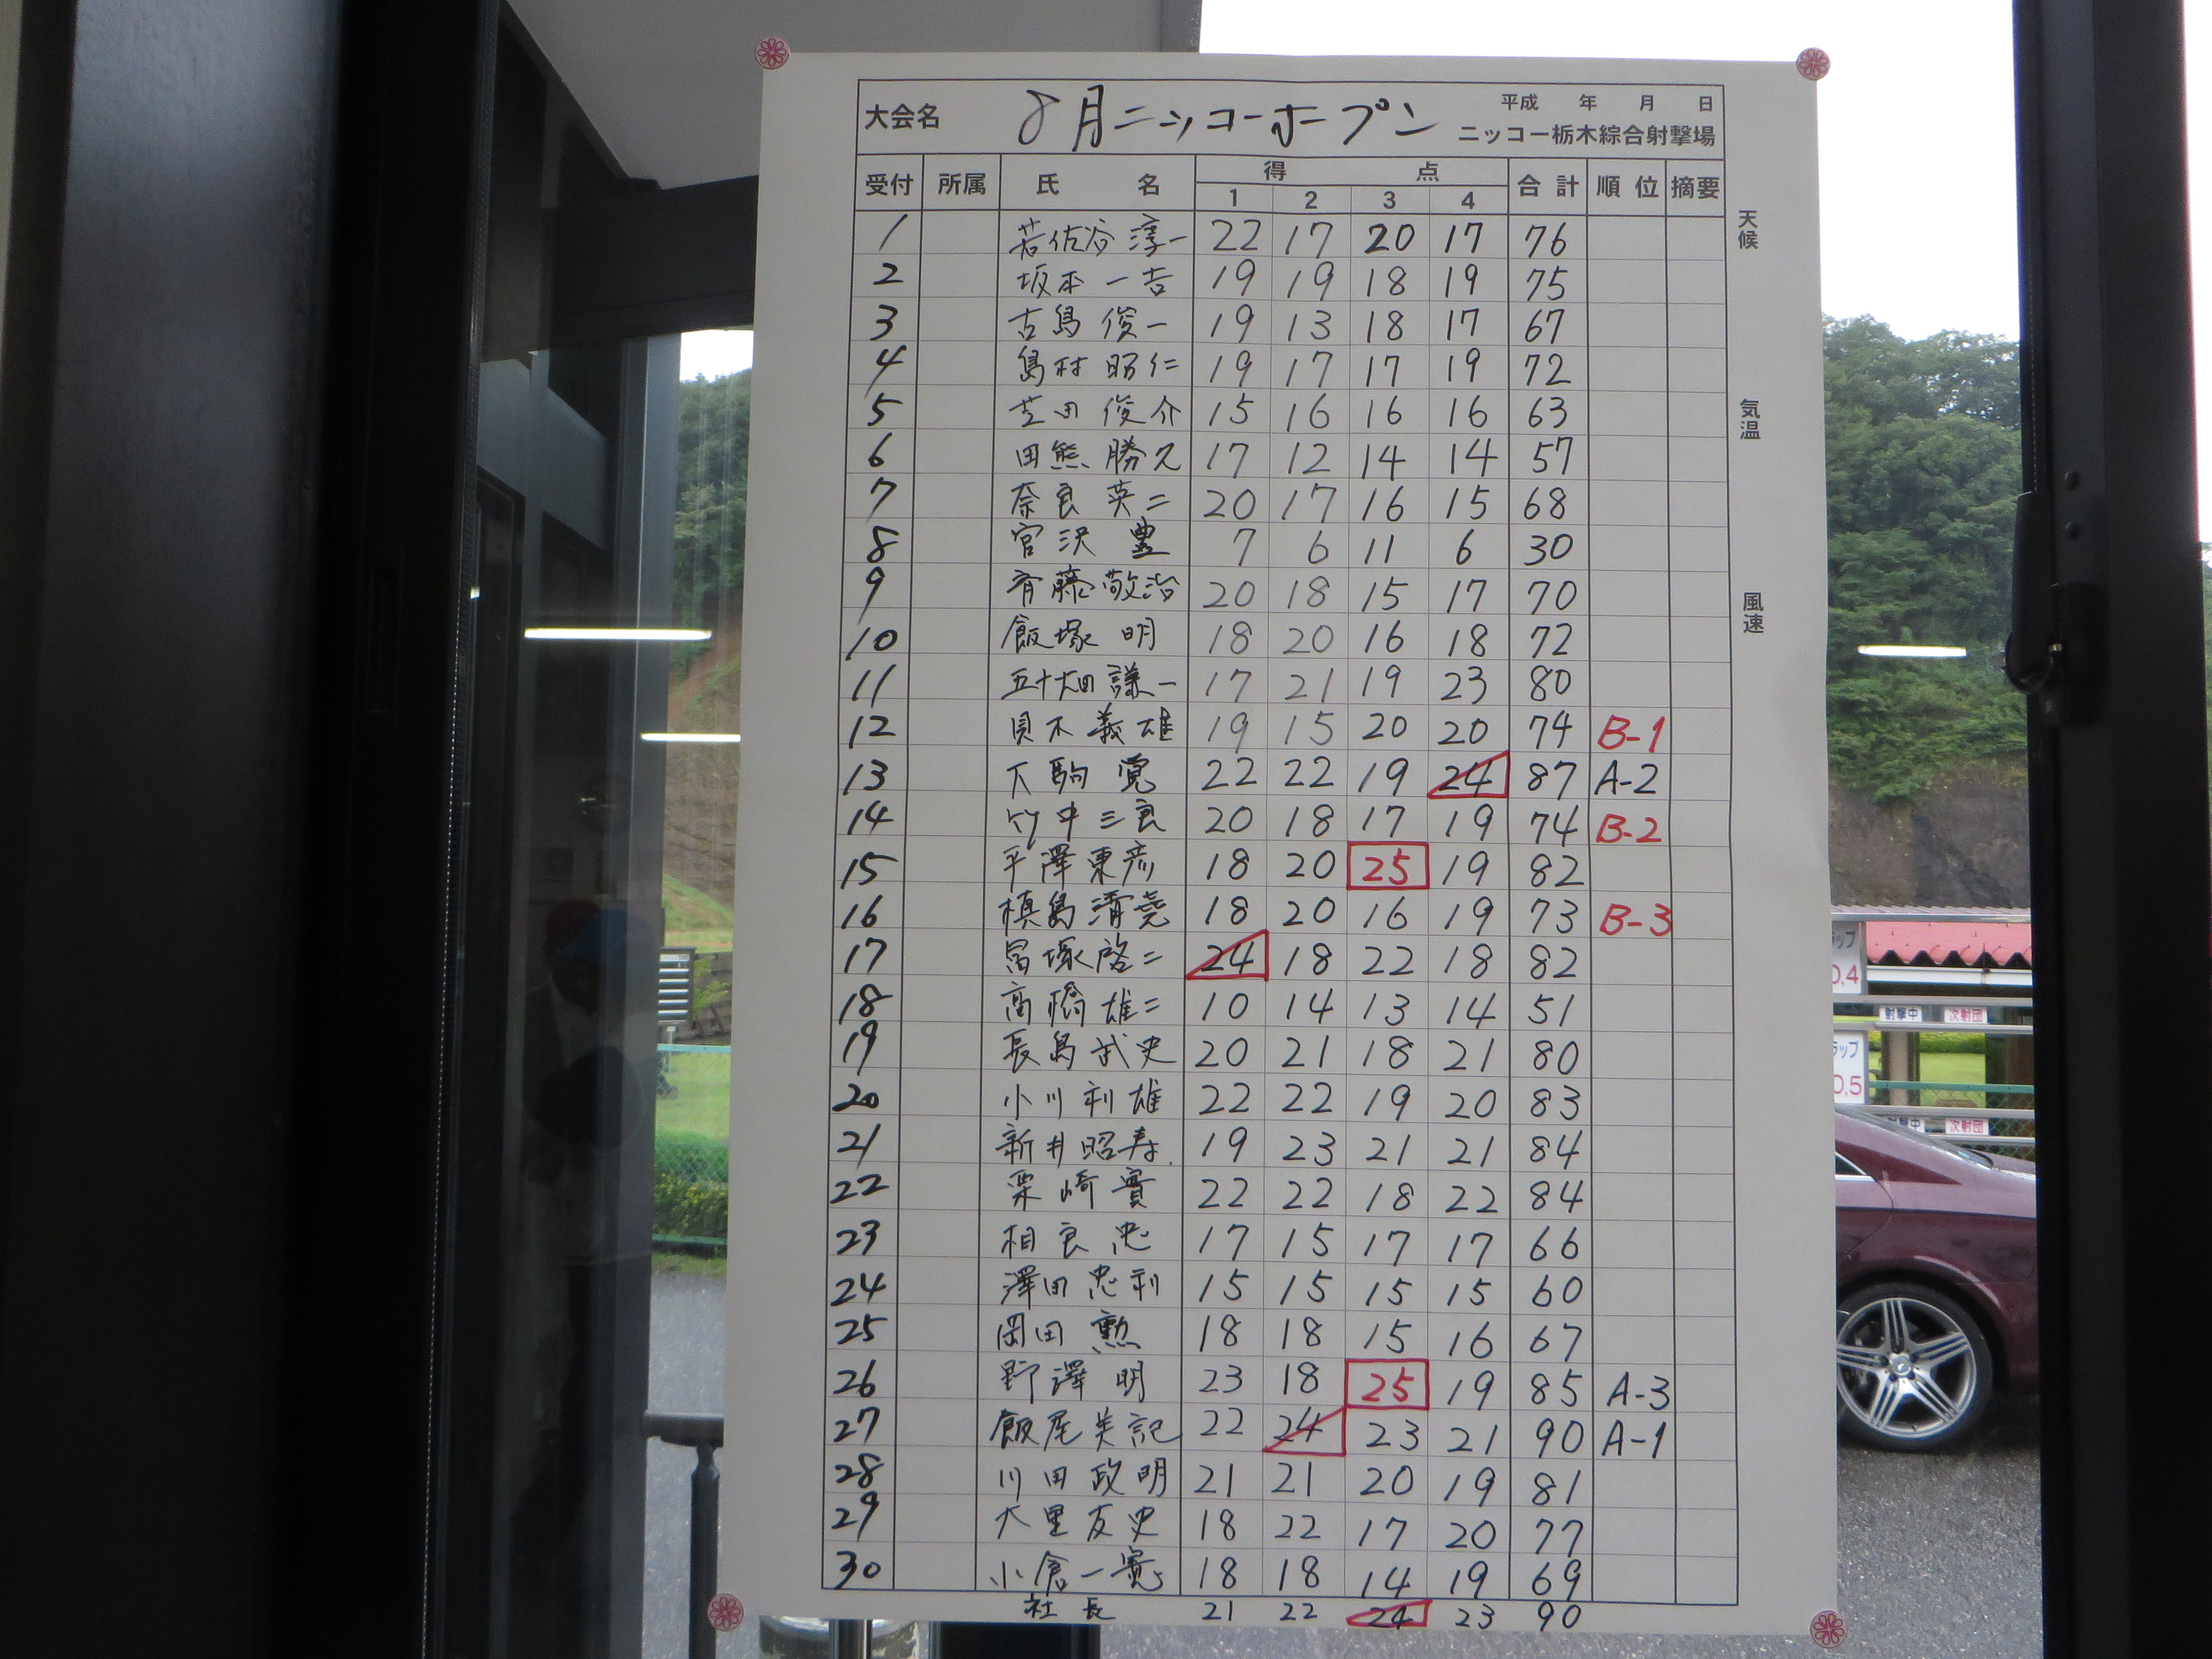 大会名 8月ニッコーホープン 平成 年 月 日
ニッコー栃木綜合射撃場
受付 所属 氏 名 得 点 合計 順位 摘要
1 2 3 4
1 若佐谷 淳一 22 17 20 17 76
2 坂本 一吉 19 19 18 19 75
3 古島 俊一 19 13 18 17 67
4 島村 昭仁 19 17 17 19 72
5 芝田 俊介 15 16 16 16 63
6 田熊 勝久 17 12 14 14 57
7 奈良 英二 20 17 16 15 68
8 宮沢 豊 7 6 11 6 30
9 斉藤 敬治 20 18 15 17 70
10 飯塚 明 18 20 16 18 72
11 五十太田 謙一 17 21 19 23 80
12 貝木 義雄 19 15 20 20 74 B-1
13 大駒 寛 22 22 19 24 87 A-2
14 竹中 三良 20 18 17 19 74 B-2
15 平澤 東彦 18 20 25 19 82
16 槙島 清堯 18 20 16 19 73 B-3
17 冨塚 啓二 24 18 22 18 82
18 高橋 雄二 10 14 13 14 51
19 長島 武史 20 21 18 21 80
20 小川 利雄 22 22 19 20 83
21 新井 昭寿 19 23 21 21 84
22 栗崎 實 22 22 18 22 84
23 相良 忠 17 15 17 17 66
24 澤田 忠利 15 15 15 15 60
25 岡田 勲 18 18 15 16 67
26 野澤 明 23 18 25 19 85 A-3
27 飯尾 美記 22 24 23 21 90 A-1
28 川田 政明 21 21 20 19 81
29 大里 友史 18 22 17 20 77
30 小倉 一寛 18 18 14 19 69
社長 21 22 24 23 90
天候
気温
風速
ラップ
0.4
射撃中 次射団
ラップ
0.5
撃中 次射団